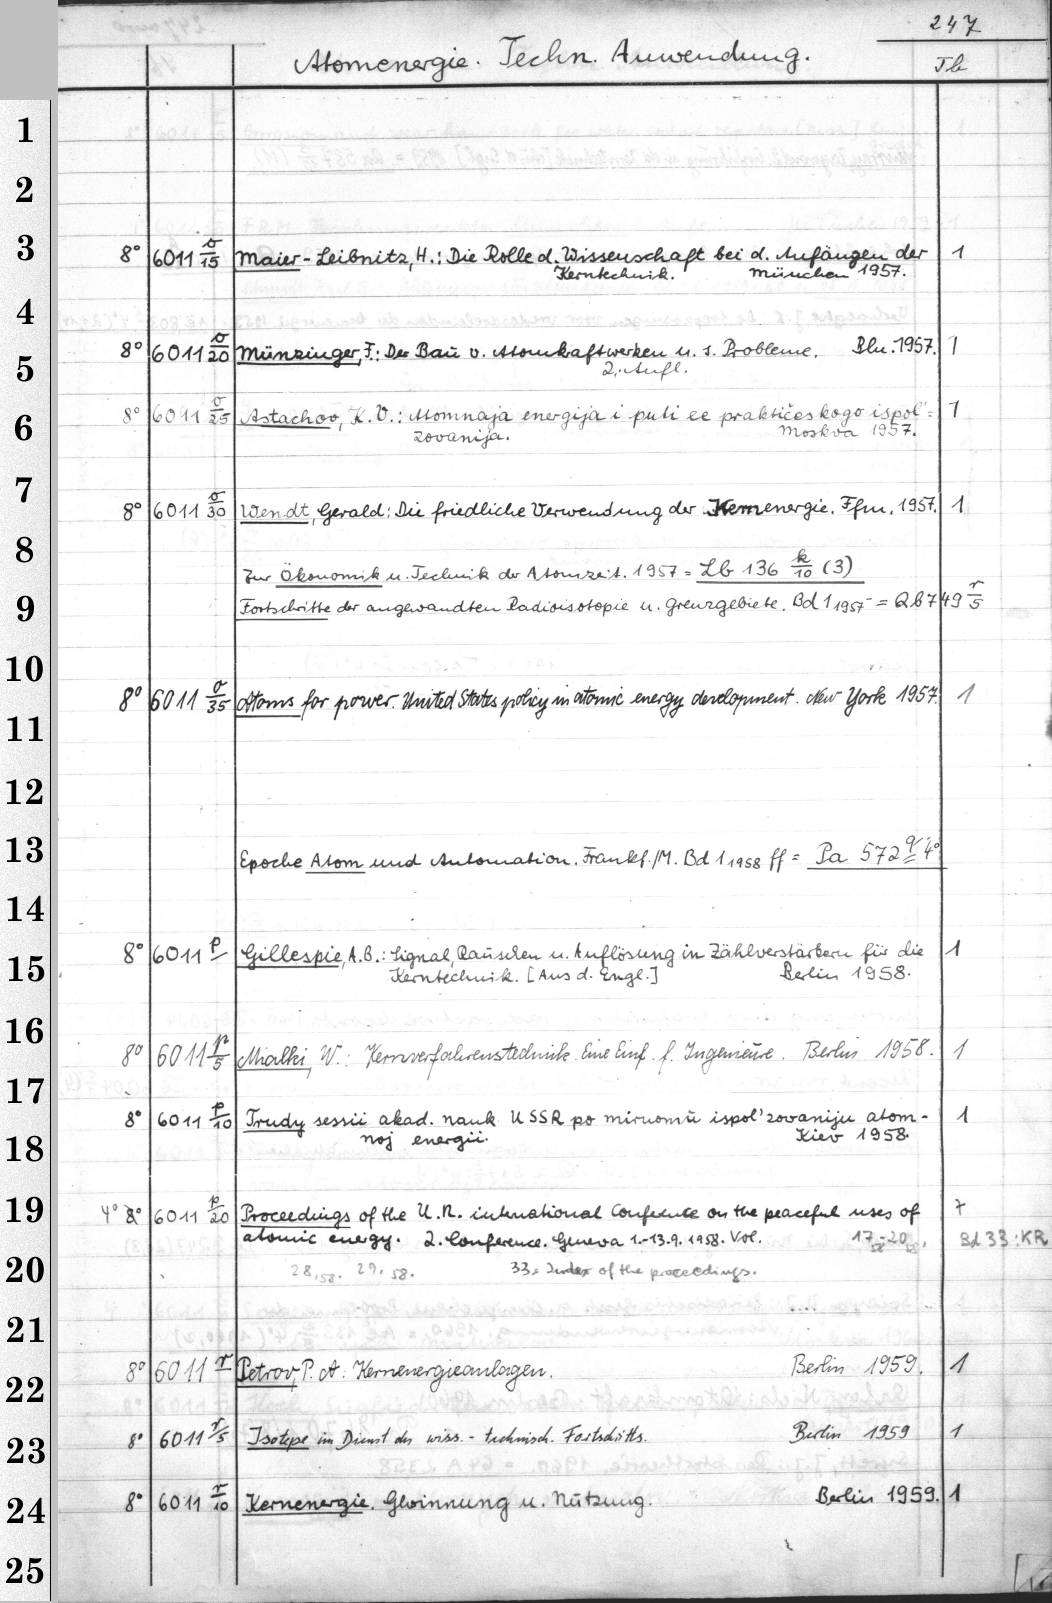 247
Atomenergie. Techn. Anwendung. Tb
1
2
3
8° 6011 o/15 Maier-Leibnitz, H.: Die Rolle d. Wissenschaft bei d. Anfängen der 1
Kerntechnik. München 1957.
4
8° 6011 o/20 Münzinger, F.: Der Bau v. Atomkraftwerken u. s. Probleme. Bln. 1957. 1
5
2. Aufl.
8° 6011 o/25 Astachov, K. V.: Atomnaja energija i puti ee praktičeskogo ispol'= 1
6
zovanija. Moskva 1957.
7
8° 6011 o/30 Wendt, Gerald: Die friedliche Verwendung der Kernenergie. Ffm. 1957. 1
8
Zur Ökonomik u. Technik der Atomzeit. 1957 = Lb 136 k/10 (3)
9
Fortschritte der angewandten Radioisotopie u. Grenzgebiete. Bd 1 1957 = Qb 749 r/5
10
8° 6011 o/35 Atoms for power. United States policy in atomic energy development. New York 1957. 1
11
12
13
Epoche Atom und Automation. Frankf./M. Bd 1 1958 ff = Pa 572 q 4°
14
8° 6011 p Gillespie, A.B.: Signal, Rauschen u. Auflösung in Zählverstärkern für die 1
15
Kerntechnik. [Aus d. Engl.] Berlin 1958.
16
8° 6011 p/5 Mialki, W.: Kernverfahrenstechnik. Eine Einf. f. Ingenieure. Berlin 1958. 1
17
8° 6011 p/10 Trudy sessii akad. nauk USSR po mirnomu ispol'zovaniju atom- 1
18
noj energii. Kiev 1958.
19
4° 6011 p/20 Proceedings of the U.N. international Conference on the peaceful uses of 7
atomic energy. 2. Conference. Geneva 1.-13.9.1958. Vol. 17 58 - 20 58. Bd 33: KR
20
28, 58. 29, 58. 33 = Index of the proceedings.
21
8° 6011 r Petrov, P. A.: Kernenergieanlagen. Berlin 1959. 1
22
8° 6011 r/5 Isotope im Dienst des wiss.-technisch. Fortschritts. Berlin 1959 1
23
8° 6011 r/10 Kernenergie. Gewinnung u. Nutzung. Berlin 1959. 1
24
25